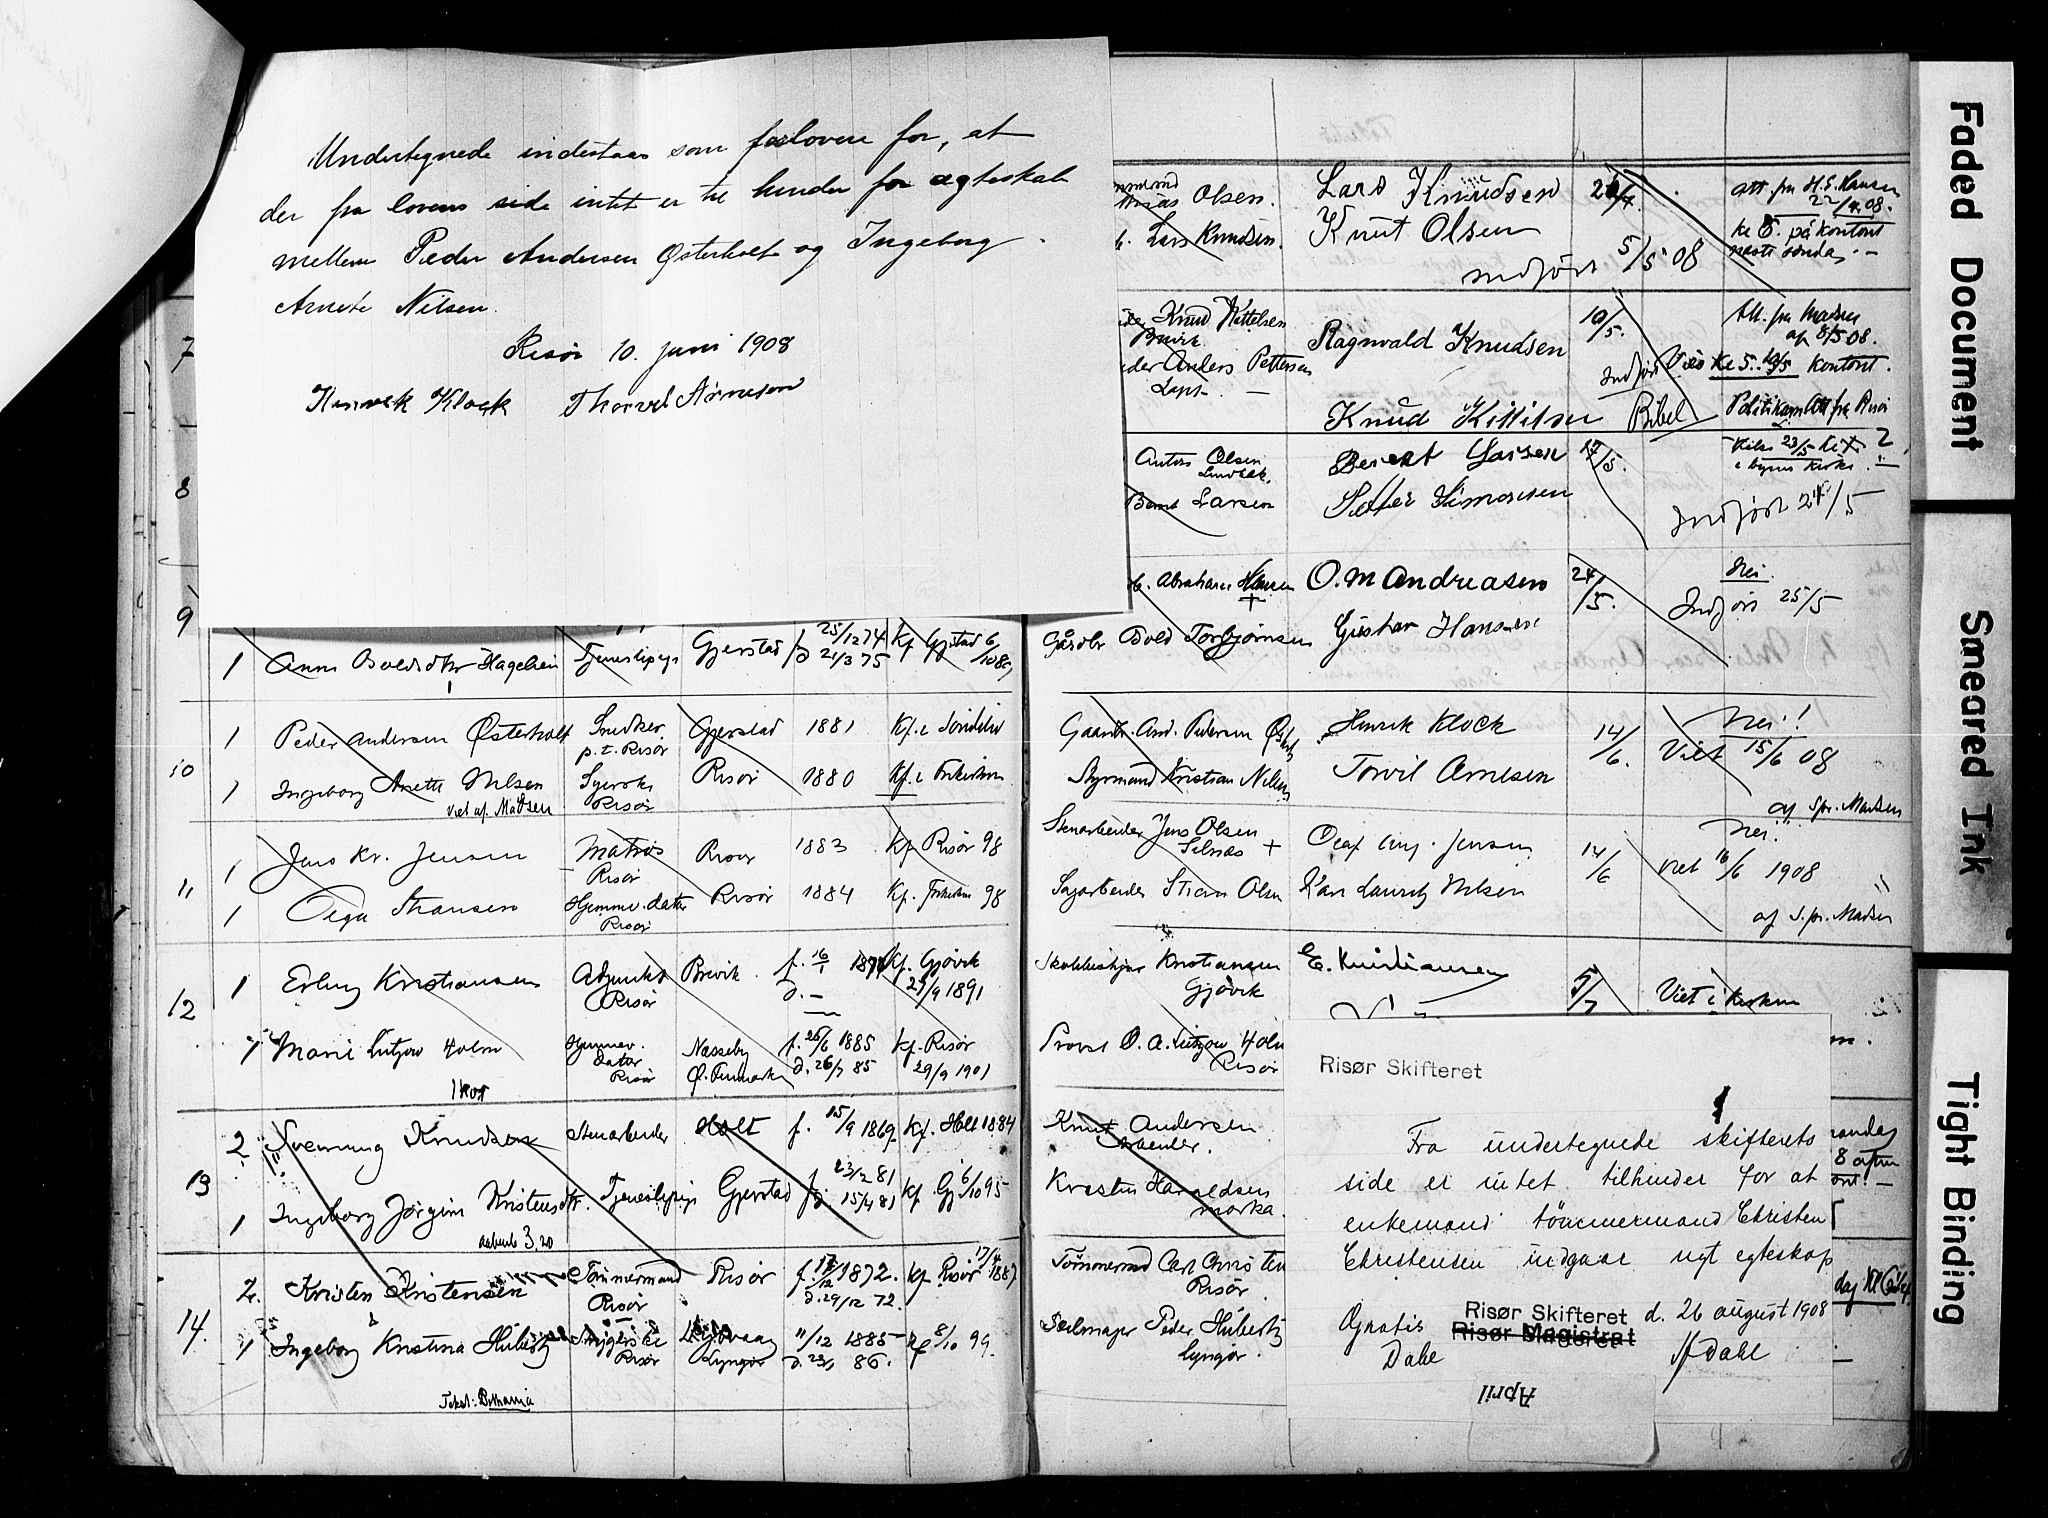 Undertegnede indestaar som forlovere for, at
der fra lovens side intet er til hinder for ægteskab
mellem Peder Andersen Østerholt og Ingeborg
Anete Nilsen.
Risør 10. juni 1908
Henrik Klock Thorvel Arnesen
7
8
9
1 Anne Boldsdtr Hagelien Tjenestepige Gjerstad f 25/12 74 Kf Gjstad 6/10 89
d 21/3 75
10
1 Peder Andersen Østerholt Snedker Gjerstad 1881 Kf. i Søndeled
p.t. Risør
1 Ingeborg Anette Nilsen Syerske Risør 1880 Kf. i Frikirken
viet af. Madsen Risør
11
1 Jens Kr. Jensen Matros Risør 1883 Kf. Risør 98
Risør
1 Olga Hansen Hjemmev. datter Risør 1884 Kf. Frikirken 98
Risør
12
1 Erling Kristiansen Adjunkt Brevik f. 16/1 Kf. Gjøvik
Risør d. — 27/9 1891
1 Marie Lützow Holm Hjemmev. Nesseby f. 26/6 1885 Kf. Risør
datter Ø. Finmarken d. 26/7 85 29/9 1901
Risør
1 kor
13
2 Svenning Knudsen Stenarbeider Holt f. 15/9 1869 Kf. Holt 1884
1 Ingeborg Jørgine Kristensdtr. Tjenestepige Gjerstad f. 23/2 81 Kf Gj 6/10 95
d. 15/4 81
14.
2. Kristen Kristensen Tømmermand Risør f. 17/12 1872. Kf. Risør 17/4 1887
Risør d. 29/12 72.
1 Ingeborg Kristina Hubertz Risør Lyngør 11/12 1885 Kf 8/10 99
d. 23/1 86.
Tekst: Bethania
Olsen. Lars Knudsen 26/4. Att. fra H.S. Hansen
22/4.08.
Lars Knudsen. Knut Olsen kl 5. på kontoret
næste søndag.—
indført 5/5 08
Knud Kittelsen Ragnvald Knudsen 10/5. Att. fra Madsen
Brevik af 8/5 08.
Anders Pettersen Indført Vies kl 5. 10/5 kontoret.
Knud Kittilsen Bibel Politikam Att fra Risør
Anton Olsen Berent Larsen 17/5. Vies 23/5 kl
Lindbæk. i byens kirke.
Bernt Larsen Peter Simonsen Indført 24/5
Abraham Hansen O. M Andreasen 24/5. Nei.
Indført 25/5
Gårdbr Bold Torbjørnsen Gustav Hansen
Gaardbr. And. Pedersen Østerholt Henrik Klock 14/6. Nei!
Viet 15/6 08
Styrmand Kristian Nilsen Torvil Arnesen
af Spr. Madsen
Stenarbeider Jens Olsen Olaf Aug. Jensen 14/6 Nei!
Selnæs + viet 16/6 1908
Sagarbeider Stian Olsen Karl Lauritz Nilsen
af S.pr. Madsen
Kristiansen E. Kristiansen 5/7 Viet i kirken
Gjøvik
Provst O. A. Lützow Holm
Risør
Knut Andersen
Arbeider.
Kristen Haraldsen
marka.
Tømmermand Carl Chris ten
Risør.
Seilmager Peder Hubertz
Lyngør.
Risør Skifteret
Fra undertegnede skifterets
side er intet tilhinder for at
enkemand tømmermand Christen
Christensen indgaar nyt egteskap
Risør Skifteret d. 26 august 1908
Risør Magistrat
Gratis
Dahl Dahl
April
Faded Document
Smeared Ink
Tight Binding